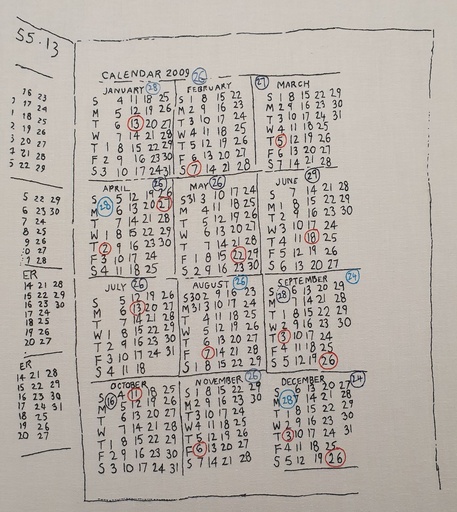 55.13
16 23
17 24
1 18 25
2 19 26
3 20 27
7 21 28
5 22 29
5 22 29
6 23 30
7 24
8 25
9 26
27
28
ER
14 21 28
15 22 29
16 23 30
17 24
18 25
19 26
20 27
ER
14 21 28
15 22 29
16 23 30
17 24 31
18 25
19 26
20 27
CALENDAR 2009 26
JANUARY 28
S 4 11 18 25
M 5 12 19 26
T 6 13 20 27
W 7 14 21 28
T 1 8 15 22 29
F 2 9 16 23 30
S 3 10 17 24 31
FEBRUARY
S 1 8 15 22
M 2 9 16 23
T 3 10 17 24
W 4 11 18 25
T 5 12 19 26
F 6 13 20 27
S 7 14 21 28
27 MARCH
S 1 8 15 22 29
M 2 9 16 23 30
T 3 10 17 24 31
W 4 11 18 25
T 5 12 19 26
F 6 13 20 27
S 7 14 21 28
APRIL 26
S 28 5 12 19 26
M 6 13 20 27
T 7 14 21 28
W 1 8 15 22 29
T 2 9 16 23 30
F 3 10 17 24
S 4 11 18 25
MAY 26
S 31 3 10 17 24
M 4 11 18 25
T 5 12 19 26
W 6 13 20 27
T 7 14 21 28
F 1 8 15 22 29
S 2 9 16 23 30
JUNE 29
S 7 14 21 28
M 1 8 15 22 29
T 2 9 16 23 30
W 3 10 17 24
T 4 11 18 25
F 5 12 19 26
S 6 13 20 27
JULY 26
S 5 12 19 26
M 6 13 20 27
T 7 14 21 28
W 1 8 15 22 29
T 2 9 16 23 30
F 3 10 17 24 31
S 4 11 18
AUGUST 26
S 30 2 9 16 23
M 31 3 10 17 24
T 4 11 18 25
W 5 12 19 26
T 6 13 20 27
F 7 14 21 28
S 1 8 15 22 29
SEPTEMBER 24
S 28 6 13 20 29
M 7 14 21 28
T 1 8 15 22 29
W 2 9 16 23 30
T 3 10 17 24
F 4 11 18 25
S 5 12 19 26
OCTOBER
S 16 4 11 18 25
M 5 12 19 26
T 6 13 20 27
W 7 14 21 28
T 1 8 15 22 29
F 2 9 16 23 30
S 3 10 17 24 31
NOVEMBER 26
S 1 8 15 22 29
M 2 9 16 23 30
T 3 10 17 24
W 4 11 18 25
T 5 12 19 26
F 6 13 20 27
S 7 14 21 28
DECEMBER 24
S 6 13 20 27
M 28 7 14 21 28
T 1 8 15 22 29
W 2 9 16 23 30
T 3 10 17 24 31
F 4 11 18 25
S 5 12 19 26